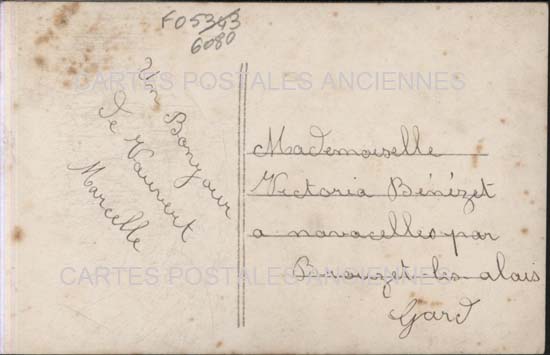 FO5343
6080
CARTES POSTALES ANCIENNES
Un Bonjour
de Vauvert
Marcelle
Mademoiselle
Victoria Bénézet
a navacelles par
Brouzet-lis alais
Gard
CARTES POSTALES ANCIENNES